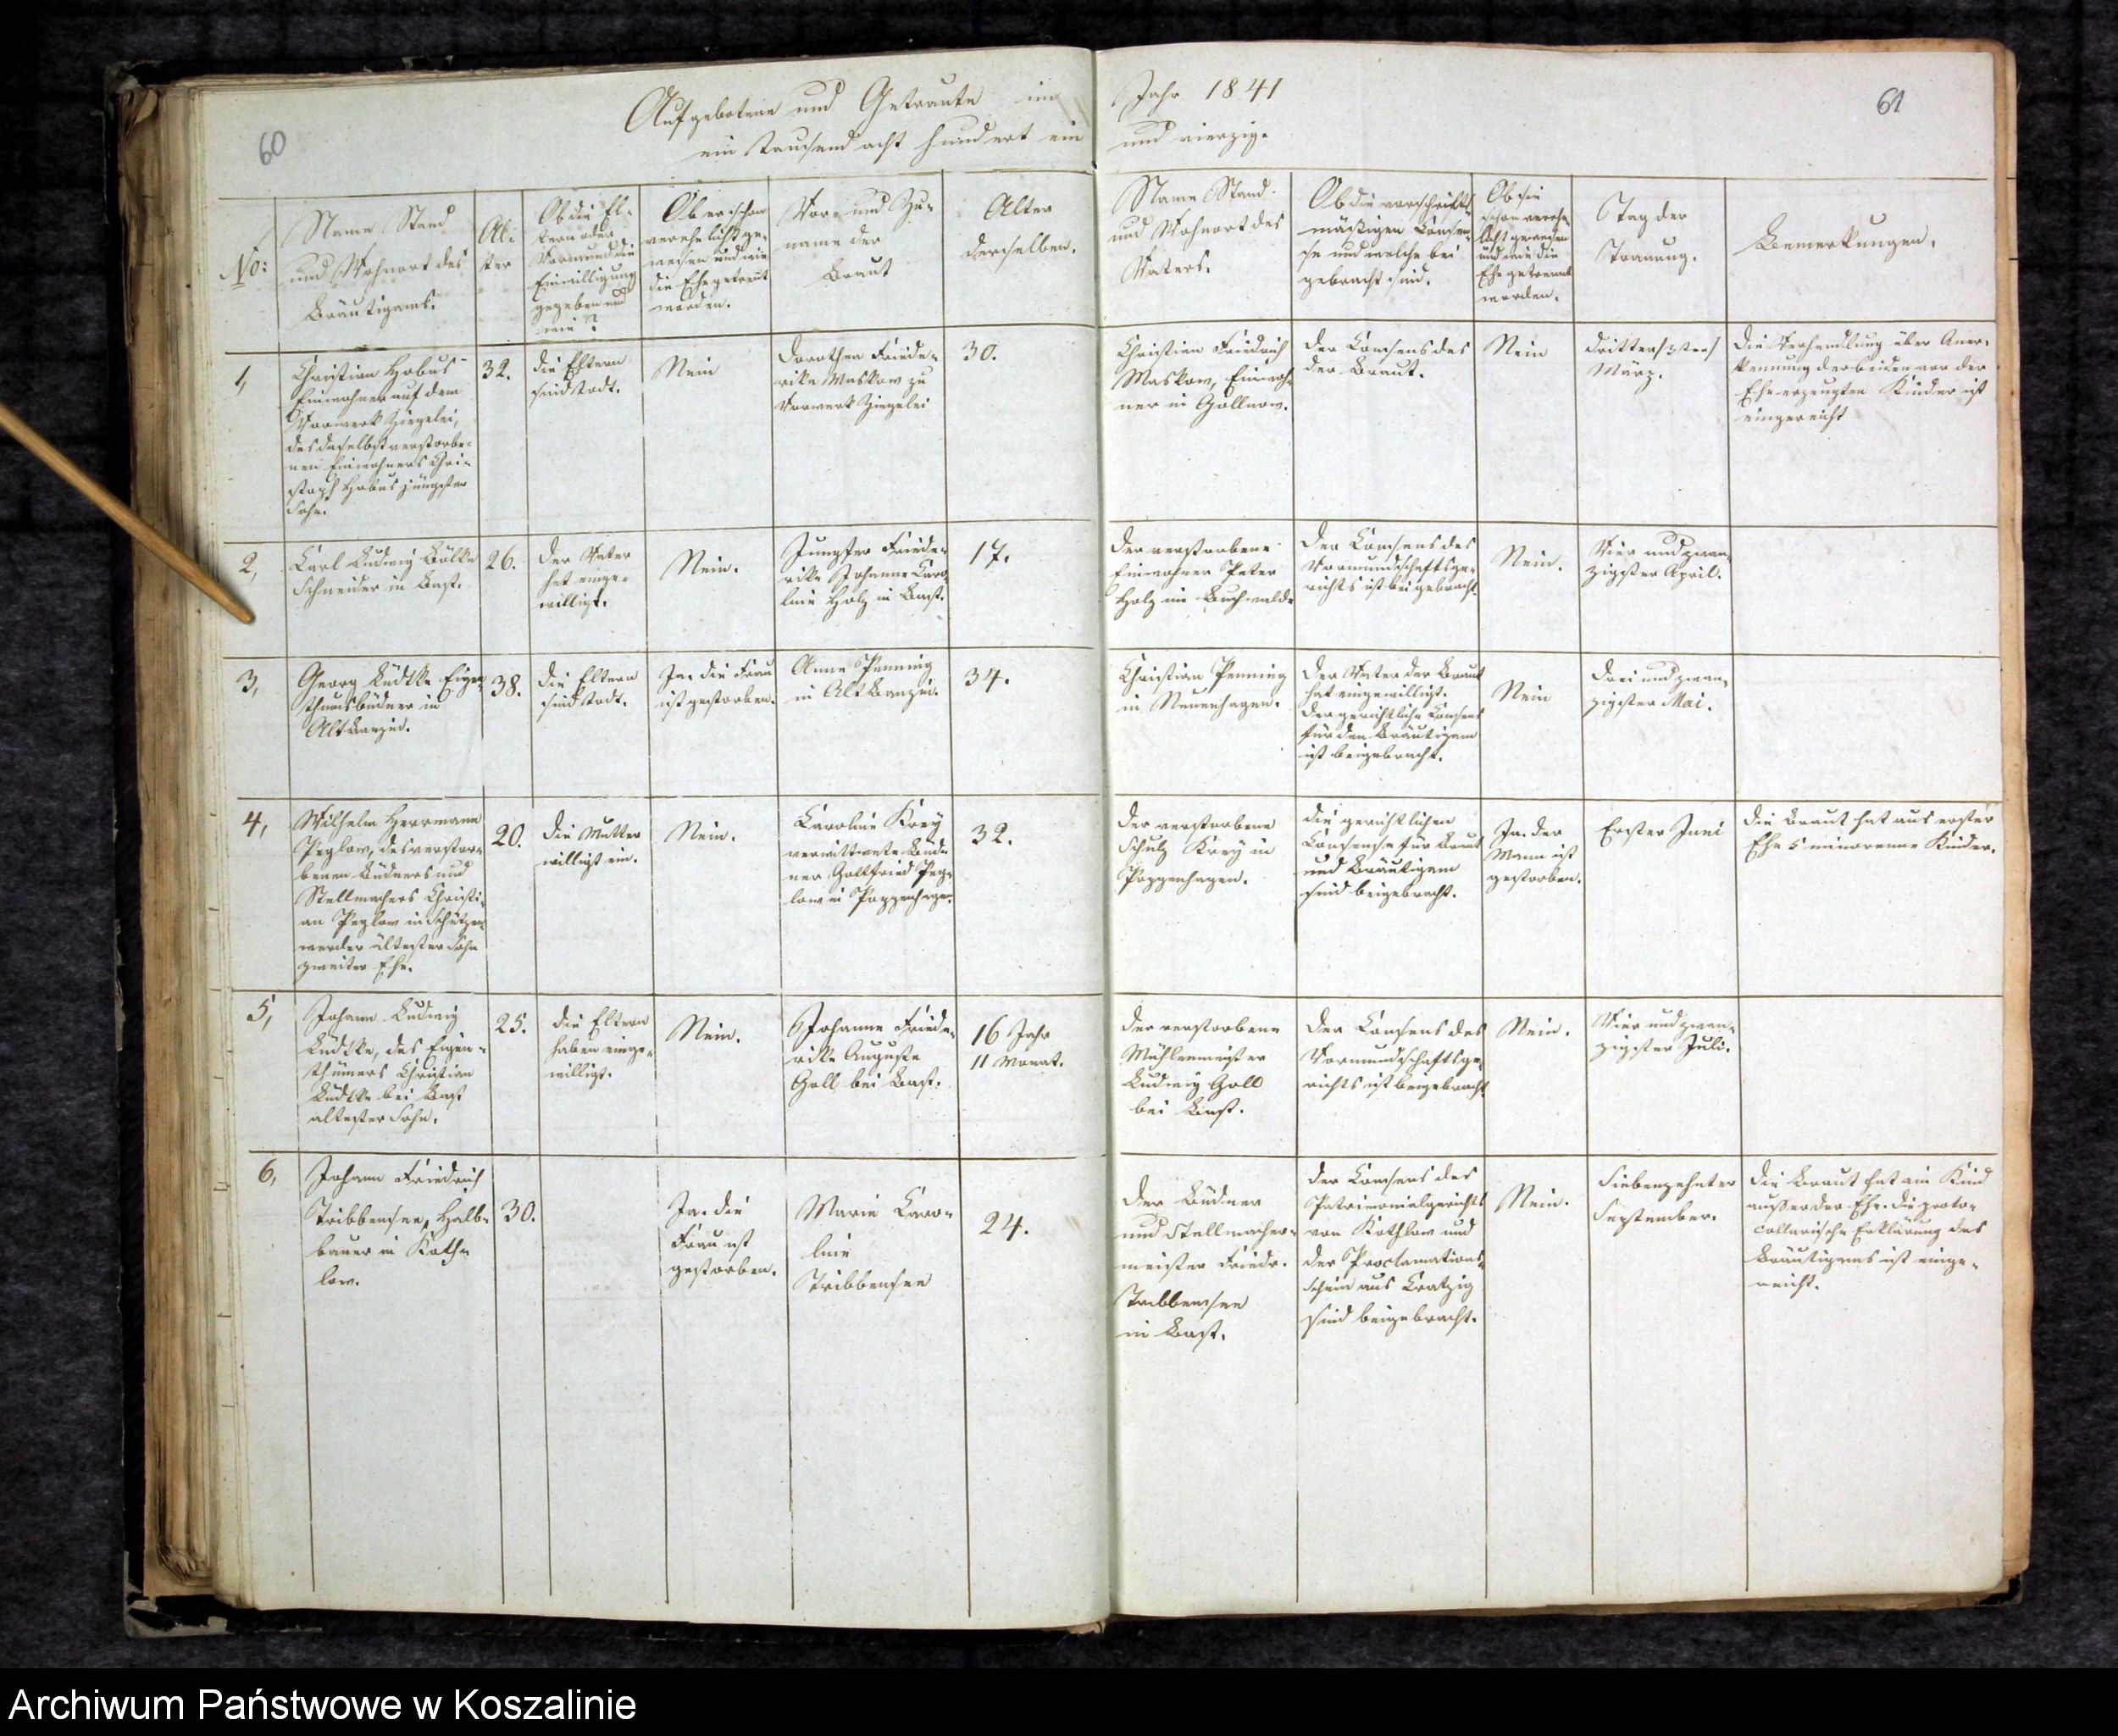 60
Aufgebotene und Getraute im
ein tausend acht hundert ein
Jahr 1841
und vierzig.
61
No:
Name Stand
und Wohnort des
Bräutigams.
Al-
ter
Ob die El-
tern oder
Vormund die
Einwilligung
gegeben und
wie?
Ob er schon
verehelicht ge-
wesen und wie
die Ehe getrennt
worden.
Vor- und Zu-
name der
Braut
Alter
derselben.
Name Stand
und Wohnort des
Vaters.
Ob die vorschrifts-
mäßigen Consen-
se und welche bei
gebracht sind.
Ob sie
schon verehe-
licht gewesen
und wie die
Ehe getrennt
worden.
Tag der
Trauung.
Bemerkungen.
1,
Christian Habus
Einwohner auf dem
Vorwerk Ziegelei,
des daselbst verstorbe-
nen Einwohners Chri-
stoph Habus jüngster
Sohn.
32.
die Eltern
sind todt.
Nein
Dorothea Friede-
rike Maskow zu
Vorwerk Ziegelei
30.
Christian Friedrich
Maskow, Einwoh-
ner in Gollnow.
Der Consens des
der Braut.
Nein
Dritter /3ter/
März.
Die Verhandlung über Aner-
kennung der beiden vor der
Ehe erzeugten Kinder ist
eingereicht
2,
Carl Ludwig Bölke
Schneider in Bast.
26.
Der Vater
hat einge-
willigt.
Nein.
Jungfer Friede-
rike Johanne Caro-
line Holz in Bast.
17.
Der verstorbene
Einwohner Peter
Holz in Buchwald
Der Consens des
Vormundschaftsge-
richts ist beigebracht.
Nein.
Vier und zwan-
zigster April.
3,
Georg Lüdtke Eigen-
thumsbüdner in
Alt Banzin.
38.
die Eltern
sind todt.
Ja. die Frau
ist gestorben.
Anna Penning
in Alt Banzin.
34.
Christian Penning
in Neuenhagen.
Der Vater der Braut
hat eingewilligt.
Der gerichtliche Consens
für den Bräutigam
ist beigebracht.
Nein
Drei und zwan-
zigster Mai.
4,
Wilhelm Herrmann
Peglow, des verstor-
benen Büdners und
Stellmachers Christi-
an Peglow in Schützen
werder ältester Sohn
zweiter Ehe.
20.
Die Mutter
willigt ein.
Nein.
Caroline Krey
verwittwete Büd-
ner Gottfried Peg-
low in Poppenhagen.
32.
Der verstorbene
Schulz Krey in
Poppenhagen.
die gerichtlichen
Consense für Braut
und Bräutigam
sind beigebracht.
Ja. der
Mann ist
gestorben.
Erster Juni
Die Braut hat aus erster
Ehe 5 minorenne Kinder.
5,
Johann Ludwig
Lüdtke, des Eigen-
thümers Christian
Lüdtke bei Bast
ältester Sohn.
25.
die Eltern
haben einge-
willigt.
Nein.
Johanne Friede-
rike Auguste
Goll bei Bast.
16 Jahr
11 Monat.
Der verstorbene
Mühlenmeister
Ludwig Goll
bei Bast.
Der Consens des
Vormundschaftsge-
richts ist beigebracht.
Nein.
Vier und zwan-
zigster Juli.
6,
Johann Friedrich
Tribbensee, Halb-
bauer in Koth-
low.
30.
Ja. die
Frau ist
gestorben.
Marie Caro-
line
Tribbensee
24.
Der Büdner
und Stellmacher-
meister Friedr.
Tribbensee
in Bast.
Der Consens des
Patrimonialgerichts
von Kothlow und
der Proclamations-
schein aus Cratzig
sind beigebracht.
Nein.
Siebenzehnter
September.
Die Braut hat ein Kind
außer der Ehe. Die proto-
collarische Erklärung des
Bräutigams ist einge-
reicht.
Archiwum Państwowe w Koszalinie